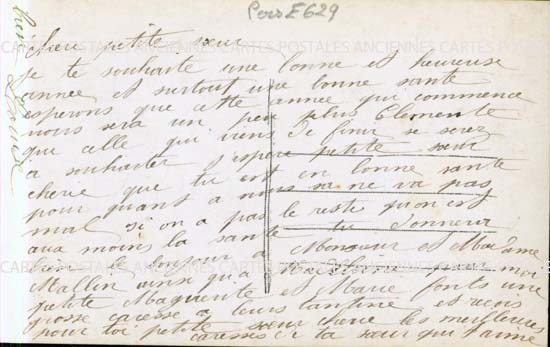 Pers E629
Chere petite sœur
je te souhaite une bonne et heureuse
année et surtout une bonne santé
esperons que cette année qui commence
nous sera un peu plus Clemente
que celle qui viens de finir se serez
a souhaiter j'espere petite sœur
cherie que tu est en bonne santé
pour quant a nous sa ne va pas
mal si on a pas le reste qu'on est
aux moins la santé tu donnera
bien le bonjour a Monsieur et Madame
Mallin ainsi qu'a pour moi
petite Maguerite et Marie fonts une
grosse caresse a leurs tantine et recois
pour toi petite sœur cherie les meilleures
caresses de ta sœur qui t'aime
CARTES POSTALES ANCIENNES